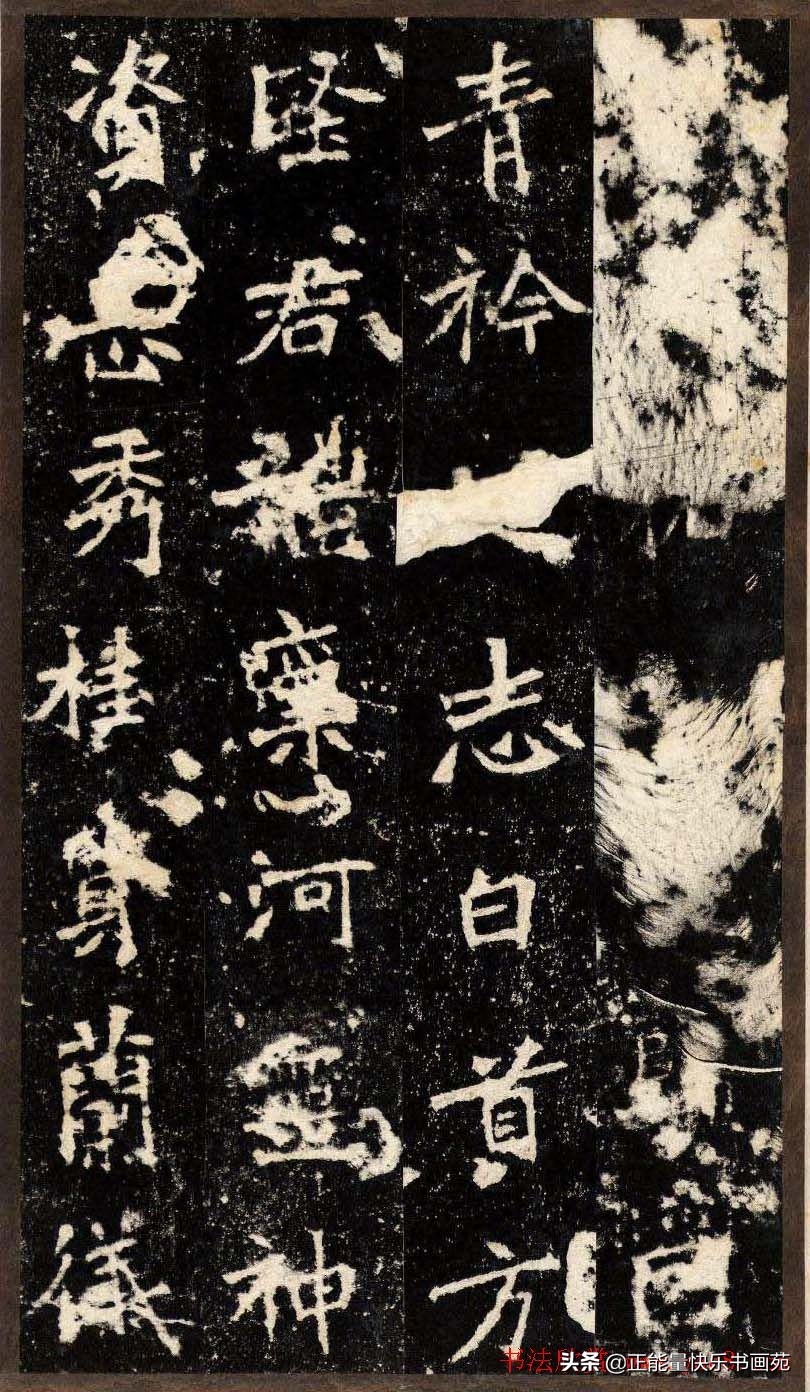 青衿志白首方
堅君體稟河靈神
資岳秀桂質蘭儀
书法欣
头条 @正能量快乐书画苑